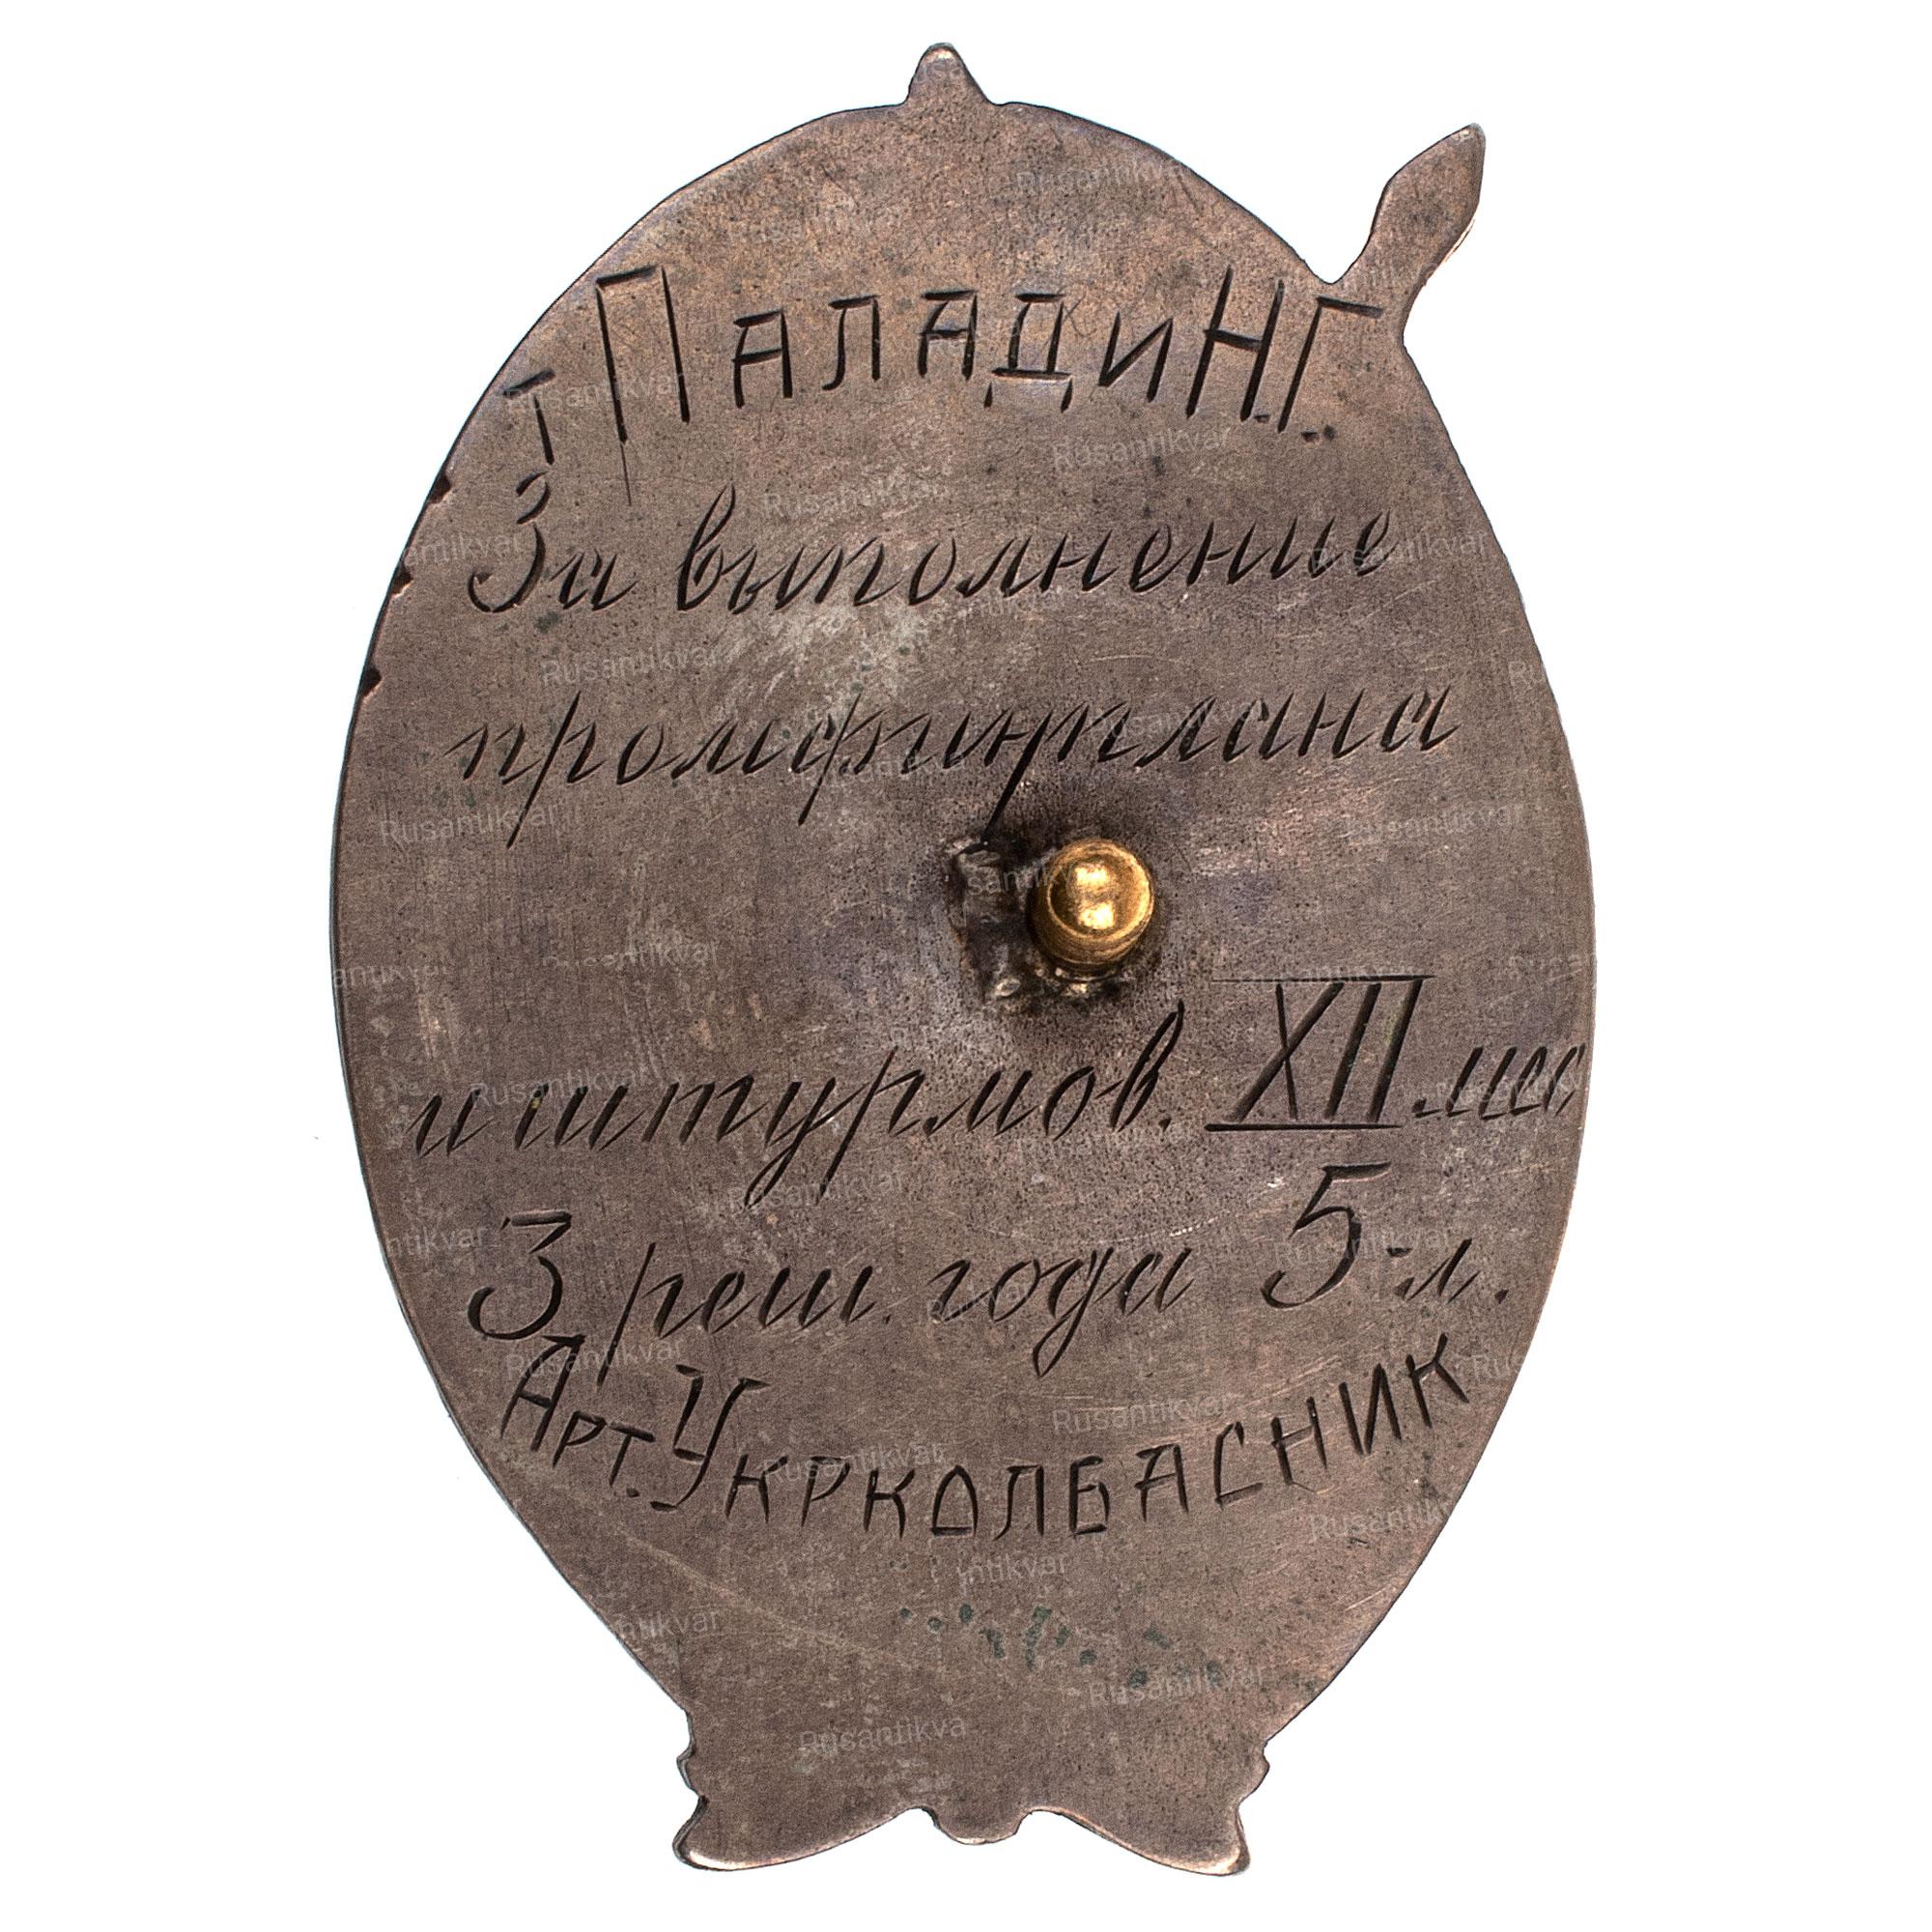 т ПАЛАДИ Н.Г.
За выполнение
промфинплана
и штурмов. XII мес
3 реш. года 5-л.
Арт. Укрколбасник
Rusantikvar